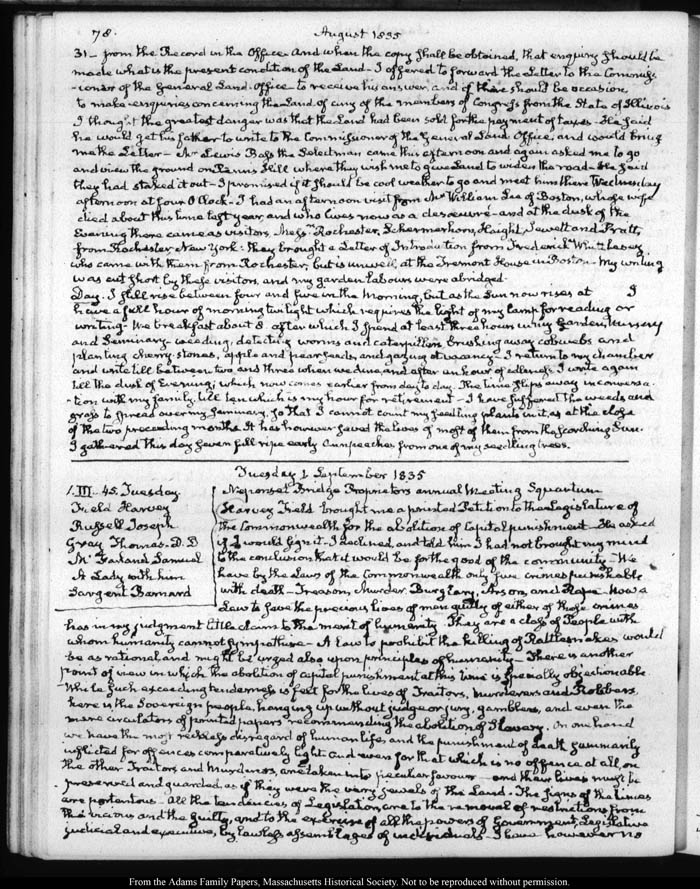 78.
August 1835
31 – from the Record in the Office. And when the copy shall be obtained, that enquiry should be
made what is the present condition of the Land – I offered to forward the Letter to the Commis-
-sioner of the General Land-Office to receive his answer, and if there should be occasion
to make enquiries concerning the Land of any of the members of Congress from the State of Illinois
I thought the greatest danger was that the Land had been sold for the payment of taxes – He said
he would get his father to write to the Commissioner of the General Land Office, and would bring
me the Letter – Mr Lewis Bass the Selectman came this afternoon and again asked me to go
and view the ground on Penns Hill where they wish me to give Land to widen the road – He said
they had staked it out – I promised if it should be cool weather to go and meet him there Wednesday
afternoon at four O'Clock – I had an afternoon visit from Mr William Lee of Boston, whose wife
died about this time last year, and who lives now as a desoeuvré – and at the dusk of the
Evening there came as visitors. Messrs Rochester, Schermerhorn, Haight, Jewett and Pratt,
from Rochester New York. They brought a Letter of Introduction from Frederick Whittlesey
who came with them from Rochester, but is unwell, at the Tremont House in Boston – My writing
was cut short by these visitors, and my garden labours were abridged.
Day. I still rise between four and five in the Morning, but as the Sun now rises at 5
have a full hour of morning twilight which requires the light of my lamp for reading or
writing – We breakfast about 8. after which I spend at least three hours in my Garden, Nursery
and Seminary – weeding, detecting worms and caterpillars, brushing away cobwebs and
planting cherry-stones, apple and pear seeds, and gazing at vacancy – I return to my chamber
and write till between two and three when we dine, and after an hour of idleness I write again
till the dusk of Evening; which now comes earlier from day to day. The time slips away in conversa-
-tion with my family till ten which is my hour for retirement – I have suffered the weeds and
grass to spread over my Seminary, so that I cannot count my seedling plants in it, as at the close
of the two preceding months. It has however saved the lives of most of them from the scorching Sun.
I gathered this day seven full ripe early Ann peaches from one of my seedling trees.
Tuesday 1. September 1835
1. III. 45. Tuesday.
Field Harvey
Russell Joseph
Gray Thomas. D.D
McFarland Samuel
A Lady with him
Sargent Barnard
Neponset Bridge Proprietors annual Meeting Squantum
Harvey Field brought me a printed Petition to the Legislature of
the Commonwealth for the abolition of Capital punishment – He asked
if I would sign it – I declined, and told him I had not brought my mind
to the conclusion that it would be for the good of the community – We
have by the Laws of the Commonwealth only five crimes punishable
with death – Treason, Murder, Burglary, Arson, and Rape – Now a
Law to save the precious lives of men guilty of either of those crimes
has in my judgment little claim to the merit of humanity They are a class of People with
whom humanity cannot sympathise – A Law to prohibit the killing of Rattlesnakes would
be as rational, and might be urged also upon principles of humanity – There is another
point of view in which the abolition of capital punishment at this time is specially objectionable.
While such exceeding tenderness is felt for the lives of Traitors, Murderers and Robbers.
here is the Sovereign people hanging up without judge or jury, gamblers, and even the
mere circulators of printed papers recommending the abolition of Slavery. On one hand
we have the most reckless disregard of human life, and the punishment of death summarily
inflicted for offences comparatively light and even for that which is no offence at all, on
the other Traitors and Murderers, are taken into peculiar favour – and their lives must be
preserved and guarded, as if they were the very jewels of the Land – The signs of the times
are portentous – All the tendencies of Legislation, are to the removal of restrictions from
the vicious and the guilty, and to the exercise of all the powers of Government, Legislative
judicial and executive, by lawless assemblages of individuals – I have however no
From the Adams Family Papers, Massachusetts Historical Society. Not to be reproduced without permission.